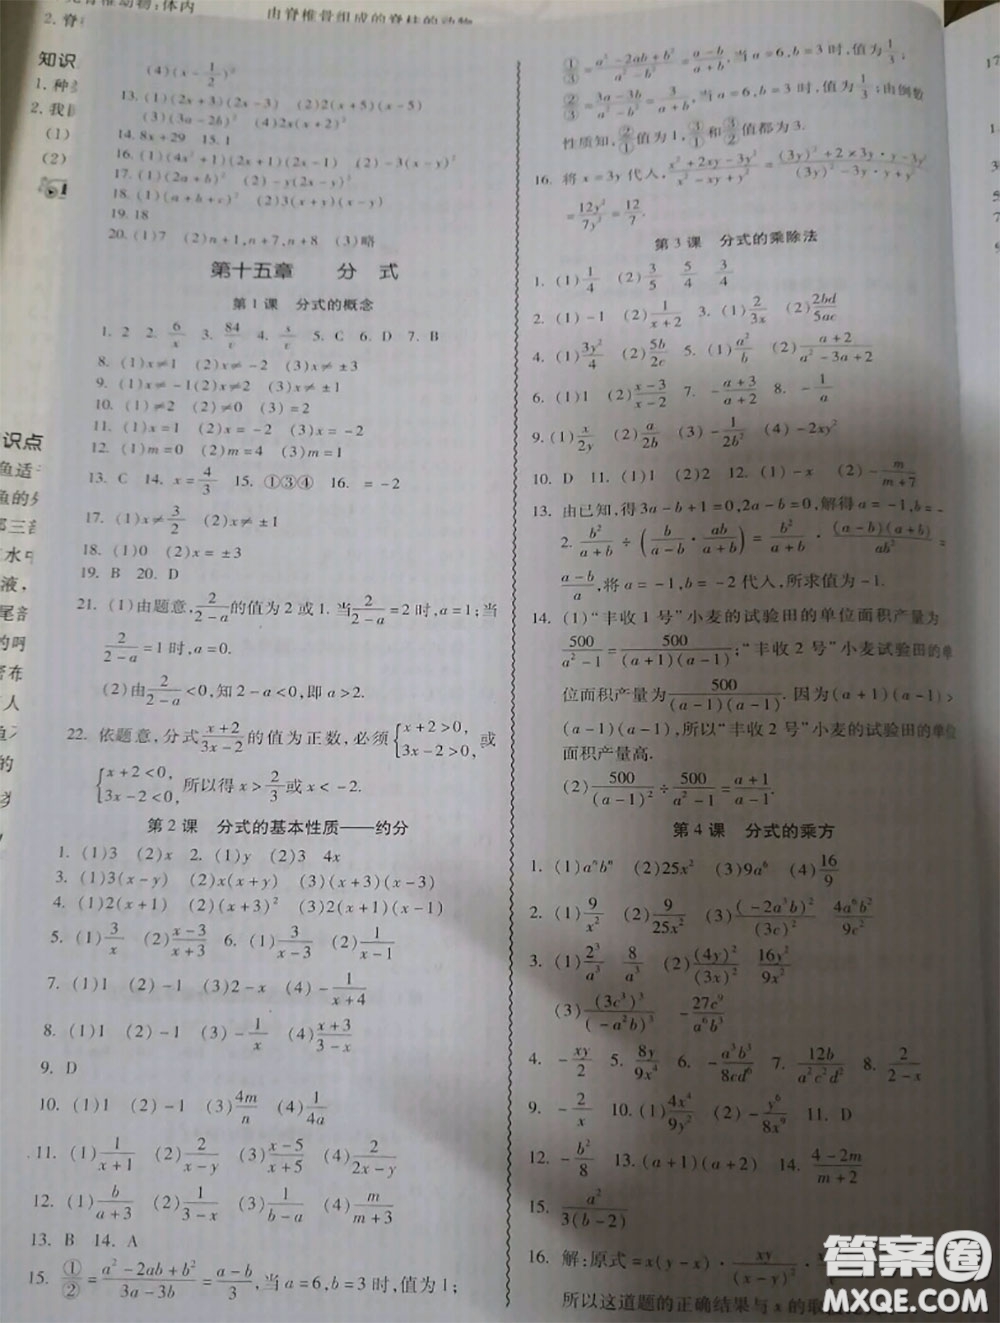 无脊椎动物;体内
由脊椎骨组成的脊柱的动物
2. 脊
知识
1. 种
2. 我
(1)
(2)
识点
鱼适
鱼的外
郭三部
水中
液,
尾部
的呵
密布
人
鱼
的
(4)(x-1/2)²
13. (1)(2x+3)(2x-3) (2)2(x+5)(x-5)
(3)(3a-2b)² (4)2x(x+2)²
14. 8x+29 15. 1
16. (1)(4x²+1)(2x+1)(2x-1) (2)-y(x-y)²
17. (1)(2a+b)² (2)-y(2x-y)²
18. (1)(a+b+c)² (2)3(x+y)(x-y)
19. 18
20. (1)7 (2)n+1,n+7,n+8 (3)略
第十五章 分 式
第 1 课 分式的概念
1. 2 2. 6/x 3. 84/v 4. s/v 5. C 6. D 7. B
8. (1)x≠ (2)x≠-2 (3)x≠±1
9. (1)x≠-1 (2)x≠2 (3)x≠±1
10. (1)≠2 (2)=0 (3)=2
11. (1)x=1 (2)x=-2 (3)x=1
12. (1)m=0 (2)m=4 (3)m=1
13. C 14. x=4/3 15. ①③④ 16. =-2
17. (1)x≠3/2 (2)x≠±1
18. (1)0 (2)x=±3
19. B 20. D
21. (1)由题意,2/(2-a)的值为2或1.当2/(2-a)=2时,a=1;当
2/(2-a)=1时,a=0.
(2)由2/(2-a)<0,知2-a<0,即a>2.
22. 依题意,分式(x+2)/(3x-2)的值为正数,必须{x+2>0, 3x-2>0,或
{x+2<0, 3x-2<0,所以得x>2/3或x<-2.
第 2 课 分式的基本性质——约分
1. (1)3 (2)x 2. (1)y (2)3 4x
3. (1)3(x-y) (2)x(x+y) (3)(x+3)(x-3)
4. (1)2(x+1) (2)(x+3)² (3)2(x+1)(x-1)
5. (1)3/x (2)(x-3)/(x+3) 6. (1)3/(x-3) (2)1/(x-1)
7. (1)1 (2)-1 (3)2-x (4)-1/(x+4)
8. (1)1 (2)-1 (3)-1/x (4)(x+3)/(3-x)
9. D
10. (1)1 (2)-1 (3)4m/n (4)1/4a
11. (1)1/(x+1) (2)2/(x-y) (3)(x-5)/(x+5) (4)2/(2x-y)
12. (1)b/(a+3) (2)1/(3-x) (3)1/(b-a) (4)m/(m+3)
13. B 14. A
15. ①/②=(a²-2ab+b²)/(3a-3b)=(a-b)/3,当a=6,b=3时,值为1;
①/③=(a²-2ab+b²)/(a²-b²)=(a-b)/(a+b),当a=6,b=3时,值为1/3;
②/③=(3a-3b)/(a²-b²)=3/(a+b),当a=6,b=3时,值为1/3;由倒数
性质知,②/①值为1,③/①和③/②值都为3.
16. 将x=3y代入,(x²+2xy-3y²)/(x²-xy+y²)=((3y)²+2×3y·y-3y²)/((3y)²-3y·y+y²)
=12y²/7y²=12/7.
第 3 课 分式的乘除法
1. (1)1/4 (2)3/5 5/4 3/4
2. (1)-1 (2)1/(x+2) 3. (1)2/3x (2)2bd/5ac
4. (1)3y²/4 (2)5b/2c 5. (1)a²/b (2)(a+2)/(a²-3a+2)
6. (1)1 (2)(x-3)/(x-2) 7. -(a+3)/(a+2) 8. -1/a
9. (1)x/2y (2)a/2b (3)-1/2b² (4)-2xy²
10. D 11. (1)1 (2)2 12. (1)-x (2)-m/(m+7)
13. 由已知,得3a-b+1=0,2a-b=0,解得a=-1,b=-
2. b²/(a+b)÷(b/(a-b)·ab/(a+b))=b²/(a+b)·(a-b)(a+b)/ab²=
(a-b)/a,将a=-1,b=-2代入,所求值为-1.
14. (1)“丰收1号”小麦的试验田的单位面积产量为
500/(a²-1)=500/((a+1)(a-1));“丰收2号”小麦试验田的单
位面积产量为500/((a-1)(a-1)).因为(a+1)(a-1)>
(a-1)(a-1),所以“丰收2号”小麦的试验田的单位
面积产量高.
(2)500/(a-1)²÷500/(a²-1)=(a+1)/(a-1).
第 4 课 分式的乘方
1. (1)aⁿbⁿ (2)25x² (3)9a⁶ (4)16/9
2. (1)9/x² (2)9/25x² (3)(-2a³b)²/(3c)² 4a⁶b²/9c²
3. (1)2³/a³ 8/a³ (2)(4y)²/(3x)² 16y²/9x²
(3)(3c³)³/(-a²b)³ -27c⁹/a⁶b³
4. -xy/2 5. 8y/9x⁴ 6. -a³b³/8cd⁶ 7. 12b/a²c²d² 8. 2/(2-x)
9. -2/x 10. (1)4x⁴/9y² (2)-y⁶/8x⁹ 11. D
12. -b²/8 13. (a+1)(a+2) 14. (4-2m)/(m+2)
15. a²/3(b-2)
16. 解:原式=x(y-x)·xy/(x-y)²·
所以这道题的正确结果与x的取
17
答案圈
MXQE.COM